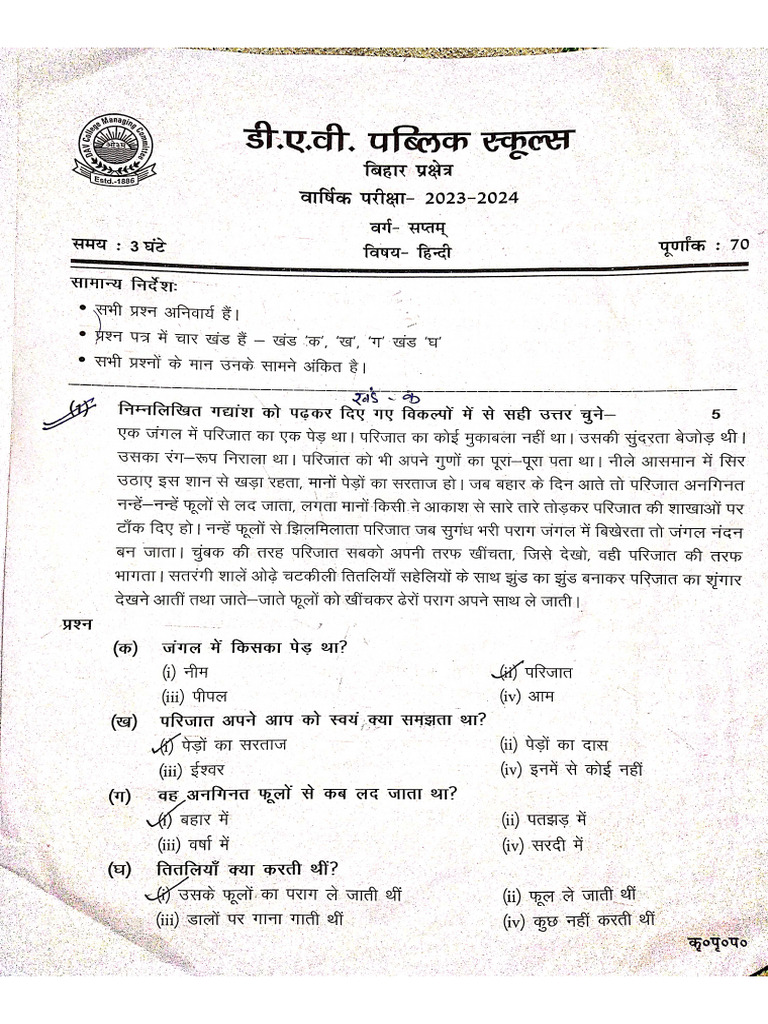 DAV College Managing Committee
Estd.-1886
डी.ए.वी. पब्लिक स्कूल्स
बिहार प्रक्षेत्र
वार्षिक परीक्षा- 2023-2024
वर्ग- सप्तम्
समय : 3 घंटे
विषय- हिन्दी
पूर्णांक : 70
सामान्य निर्देशः
• सभी प्रश्न अनिवार्य हैं।
• प्रश्न पत्र में चार खंड हैं – खंड ‘क’, ‘ख’, ‘ग’ खंड ‘घ’
• सभी प्रश्नों के मान उनके सामने अंकित है।
खंड - क
(1) निम्नलिखित गद्यांश को पढ़कर दिए गए विकल्पों में से सही उत्तर चुने– 5
एक जंगल में परिजात का एक पेड़ था। परिजात का कोई मुकाबला नहीं था। उसकी सुंदरता बेजोड़ थी।
उसका रंग–रूप निराला था। परिजात को भी अपने गुणों का पूरा–पूरा पता था। नीले आसमान में सिर
उठाए इस शान से खड़ा रहता, मानों पेड़ों का सरताज हो। जब बहार के दिन आते तो परिजात अनगिनत
नन्हें–नन्हें फूलों से लद जाता, लगता मानों किसी ने आकाश से सारे तारे तोड़कर परिजात की शाखाओं पर
टाँक दिए हो। नन्हें फूलों से झिलमिलाता परिजात जब सुगंध भरी पराग जंगल में बिखेरता तो जंगल नंदन
बन जाता। चुंबक की तरह परिजात सबको अपनी तरफ खींचता, जिसे देखो, वही परिजात की तरफ
भागता। सतरंगी शालें ओढ़े चटकीली तितलियाँ सहेलियों के साथ झुंड का झुंड बनाकर परिजात का शृंगार
देखने आतीं तथा जाते–जाते फूलों को खींचकर ढेरों पराग अपने साथ ले जाती।
प्रश्न
(क) जंगल में किसका पेड़ था?
(i) नीम (ii) परिजात
(iii) पीपल (iv) आम
(ख) परिजात अपने आप को स्वयं क्या समझता था?
(i) पेड़ों का सरताज (ii) पेड़ों का दास
(iii) ईश्वर (iv) इनमें से कोई नहीं
(ग) वह अनगिनत फूलों से कब लद जाता था?
(i) बहार में (ii) पतझड़ में
(iii) वर्षा में (iv) सरदी में
(घ) तितलियाँ क्या करती थीं?
(i) उसके फूलों का पराग ले जाती थीं (ii) फूल ले जाती थीं
(iii) डालों पर गाना गाती थीं (iv) कुछ नहीं करती थीं
कृ०पृ०प०